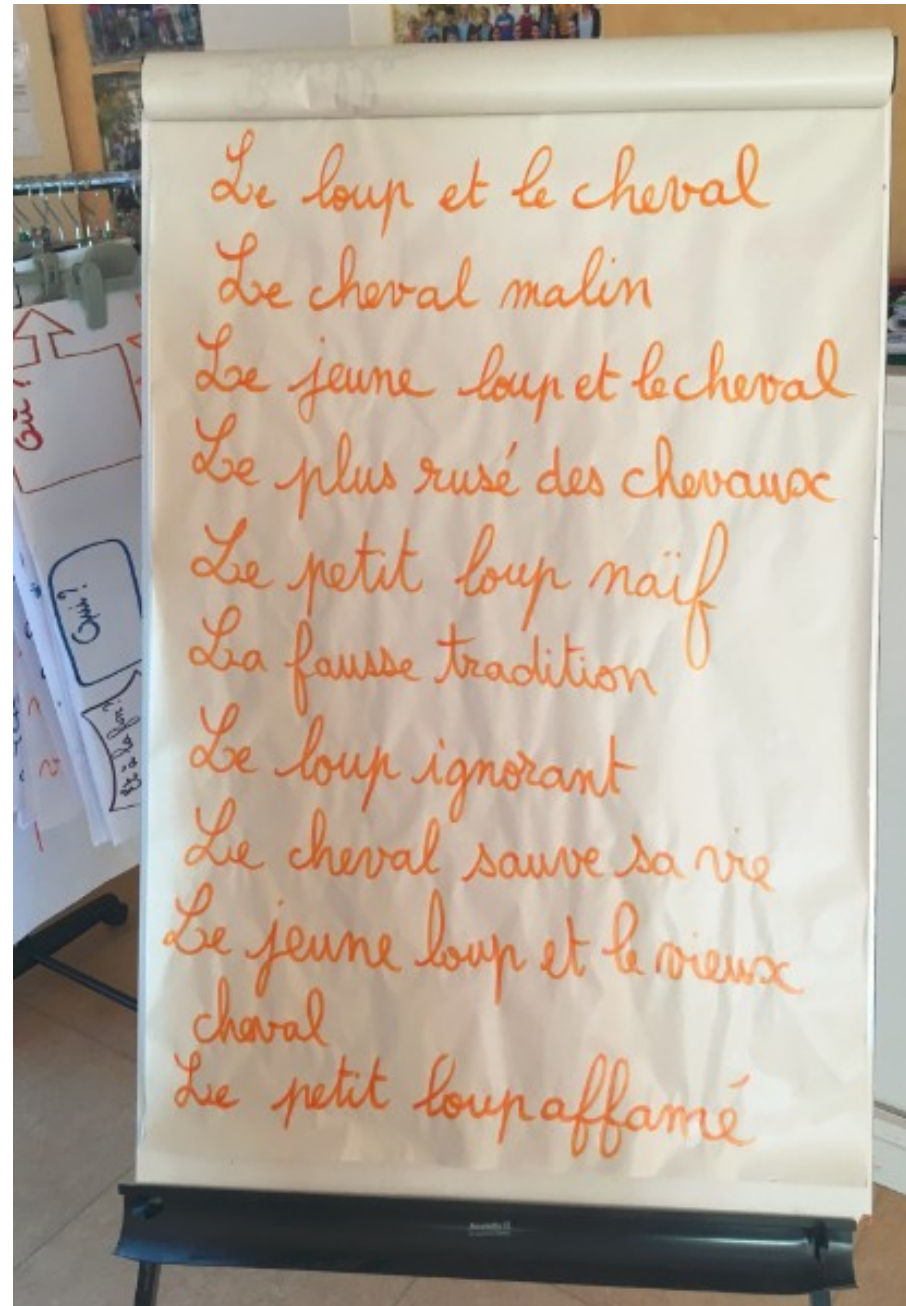 Le loup et le cheval
Le cheval malin
Le jeune loup et le cheval
Le plus rusé des chevaux
Le petit loup naïf
La fausse tradition
Le loup ignorant
Le cheval sauve sa vie
Le jeune loup et le vieux
cheval
Le petit loup affamé
Qui?